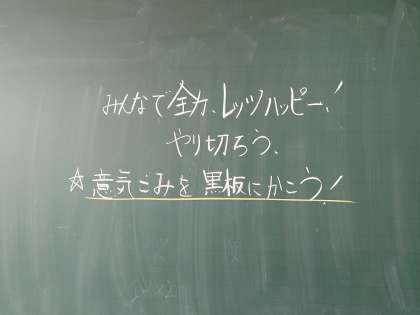 みんなで全力、レッツハッピー！
やり切ろう、
☆意気ごみを黒板にかこう！